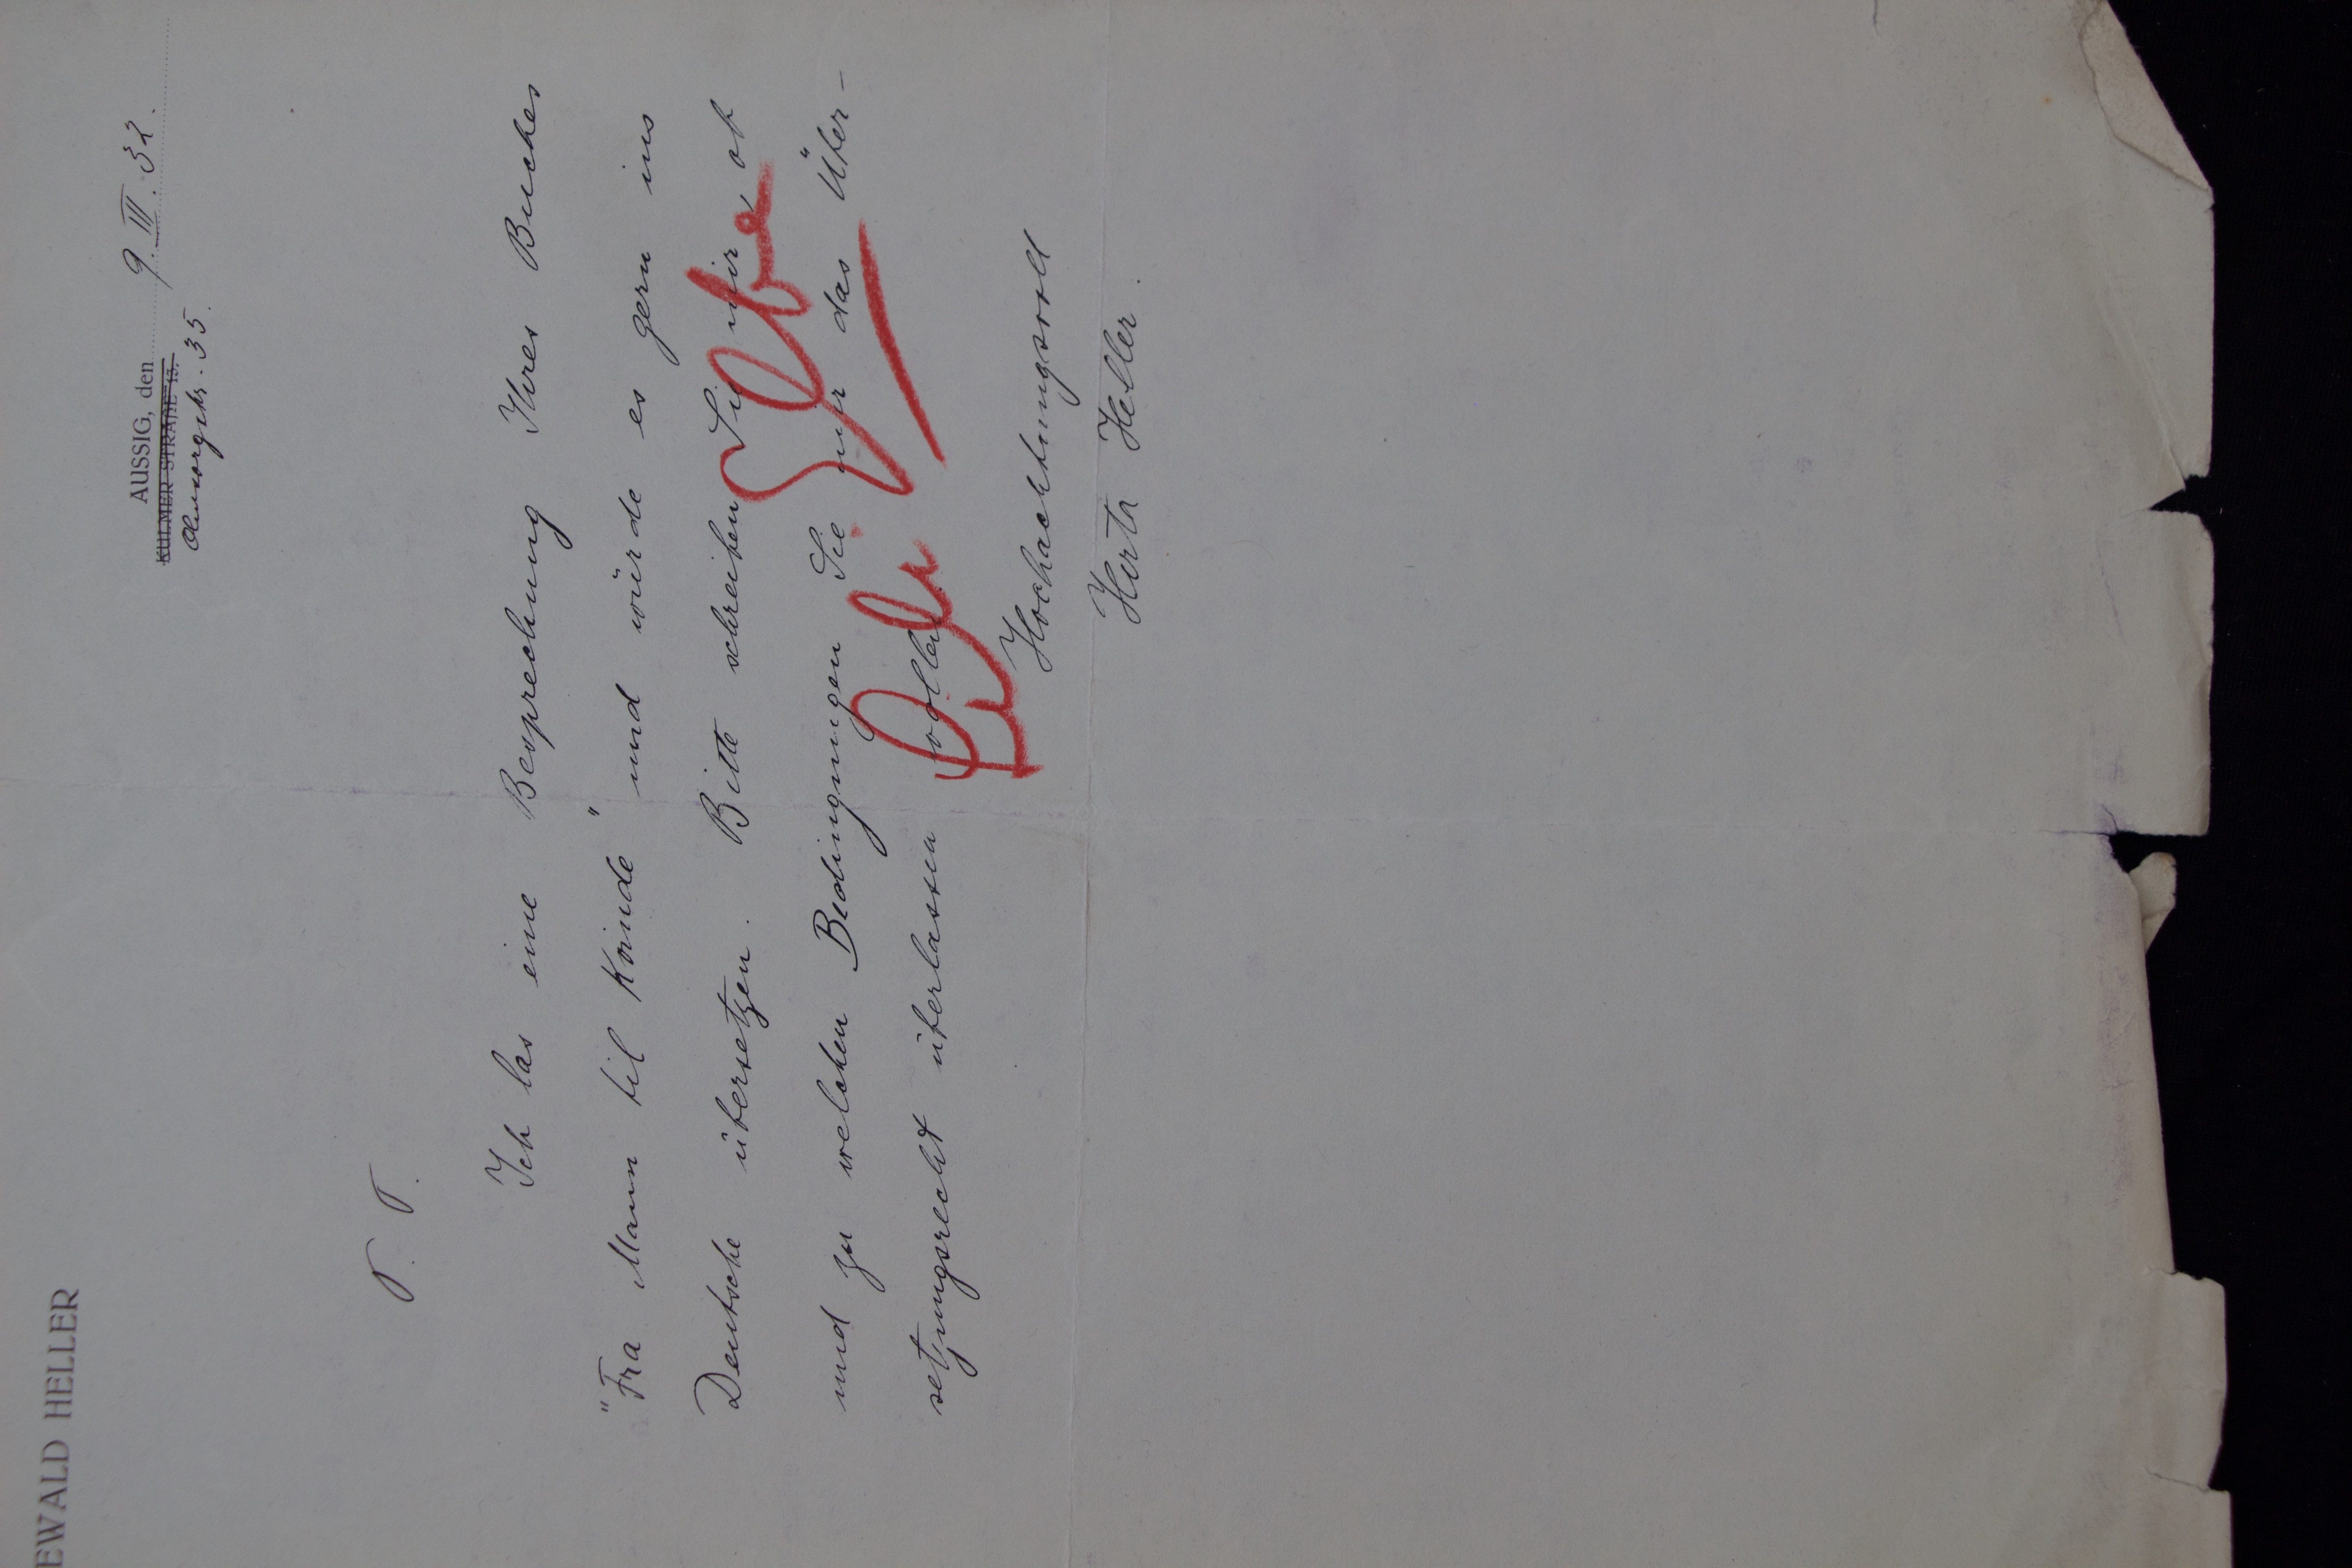 EWALD HELLER
AUSSIG, den 9. III. 32.
KULMER STRAßE 13.
35.
Ich las eine Besprechung Ihres Buches
"Fra Mann til Kvinde" und würde es gern ins
Deutsche übersetzen. Bitte schreiben Sie mir, ob
und zu welchen Bedingungen Sie mir das Über-
setzungsrecht überlassen wollen.
Lili Elbe
Hochachtungsvoll
Herta Heller.